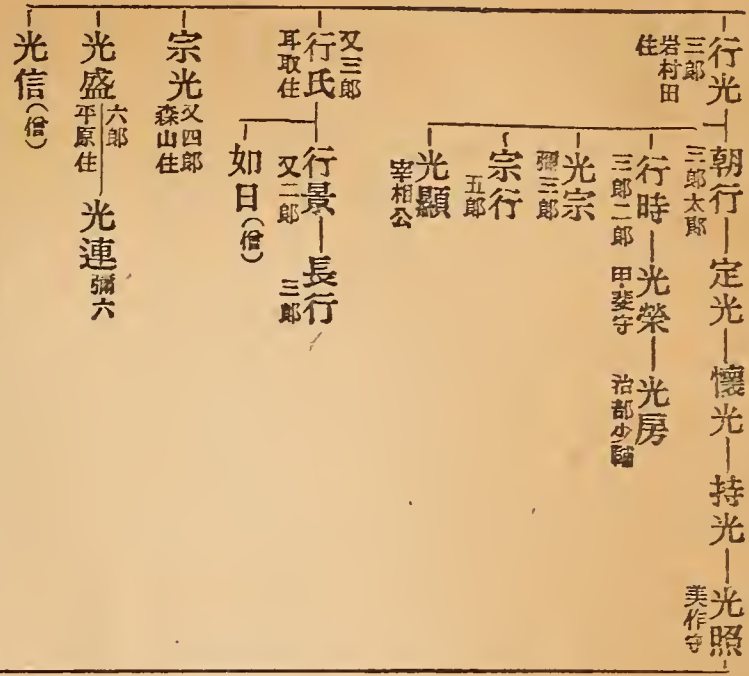 行光
三郎
岩村田
住
朝行
三郎太郎
定光
懷光
持光
光照
美作守
行時
三郎二郎
光榮
甲斐守
光房
治部少輔
光宗
彌三郎
宗行
五郎
光顯
宰相公
行氏
又三郎
耳取住
行景
又二郎
長行
三郎
如日(僧)
宗光
又四郎
森山住
光盛
六郎
平原住
光連
彌六
光信(僧)